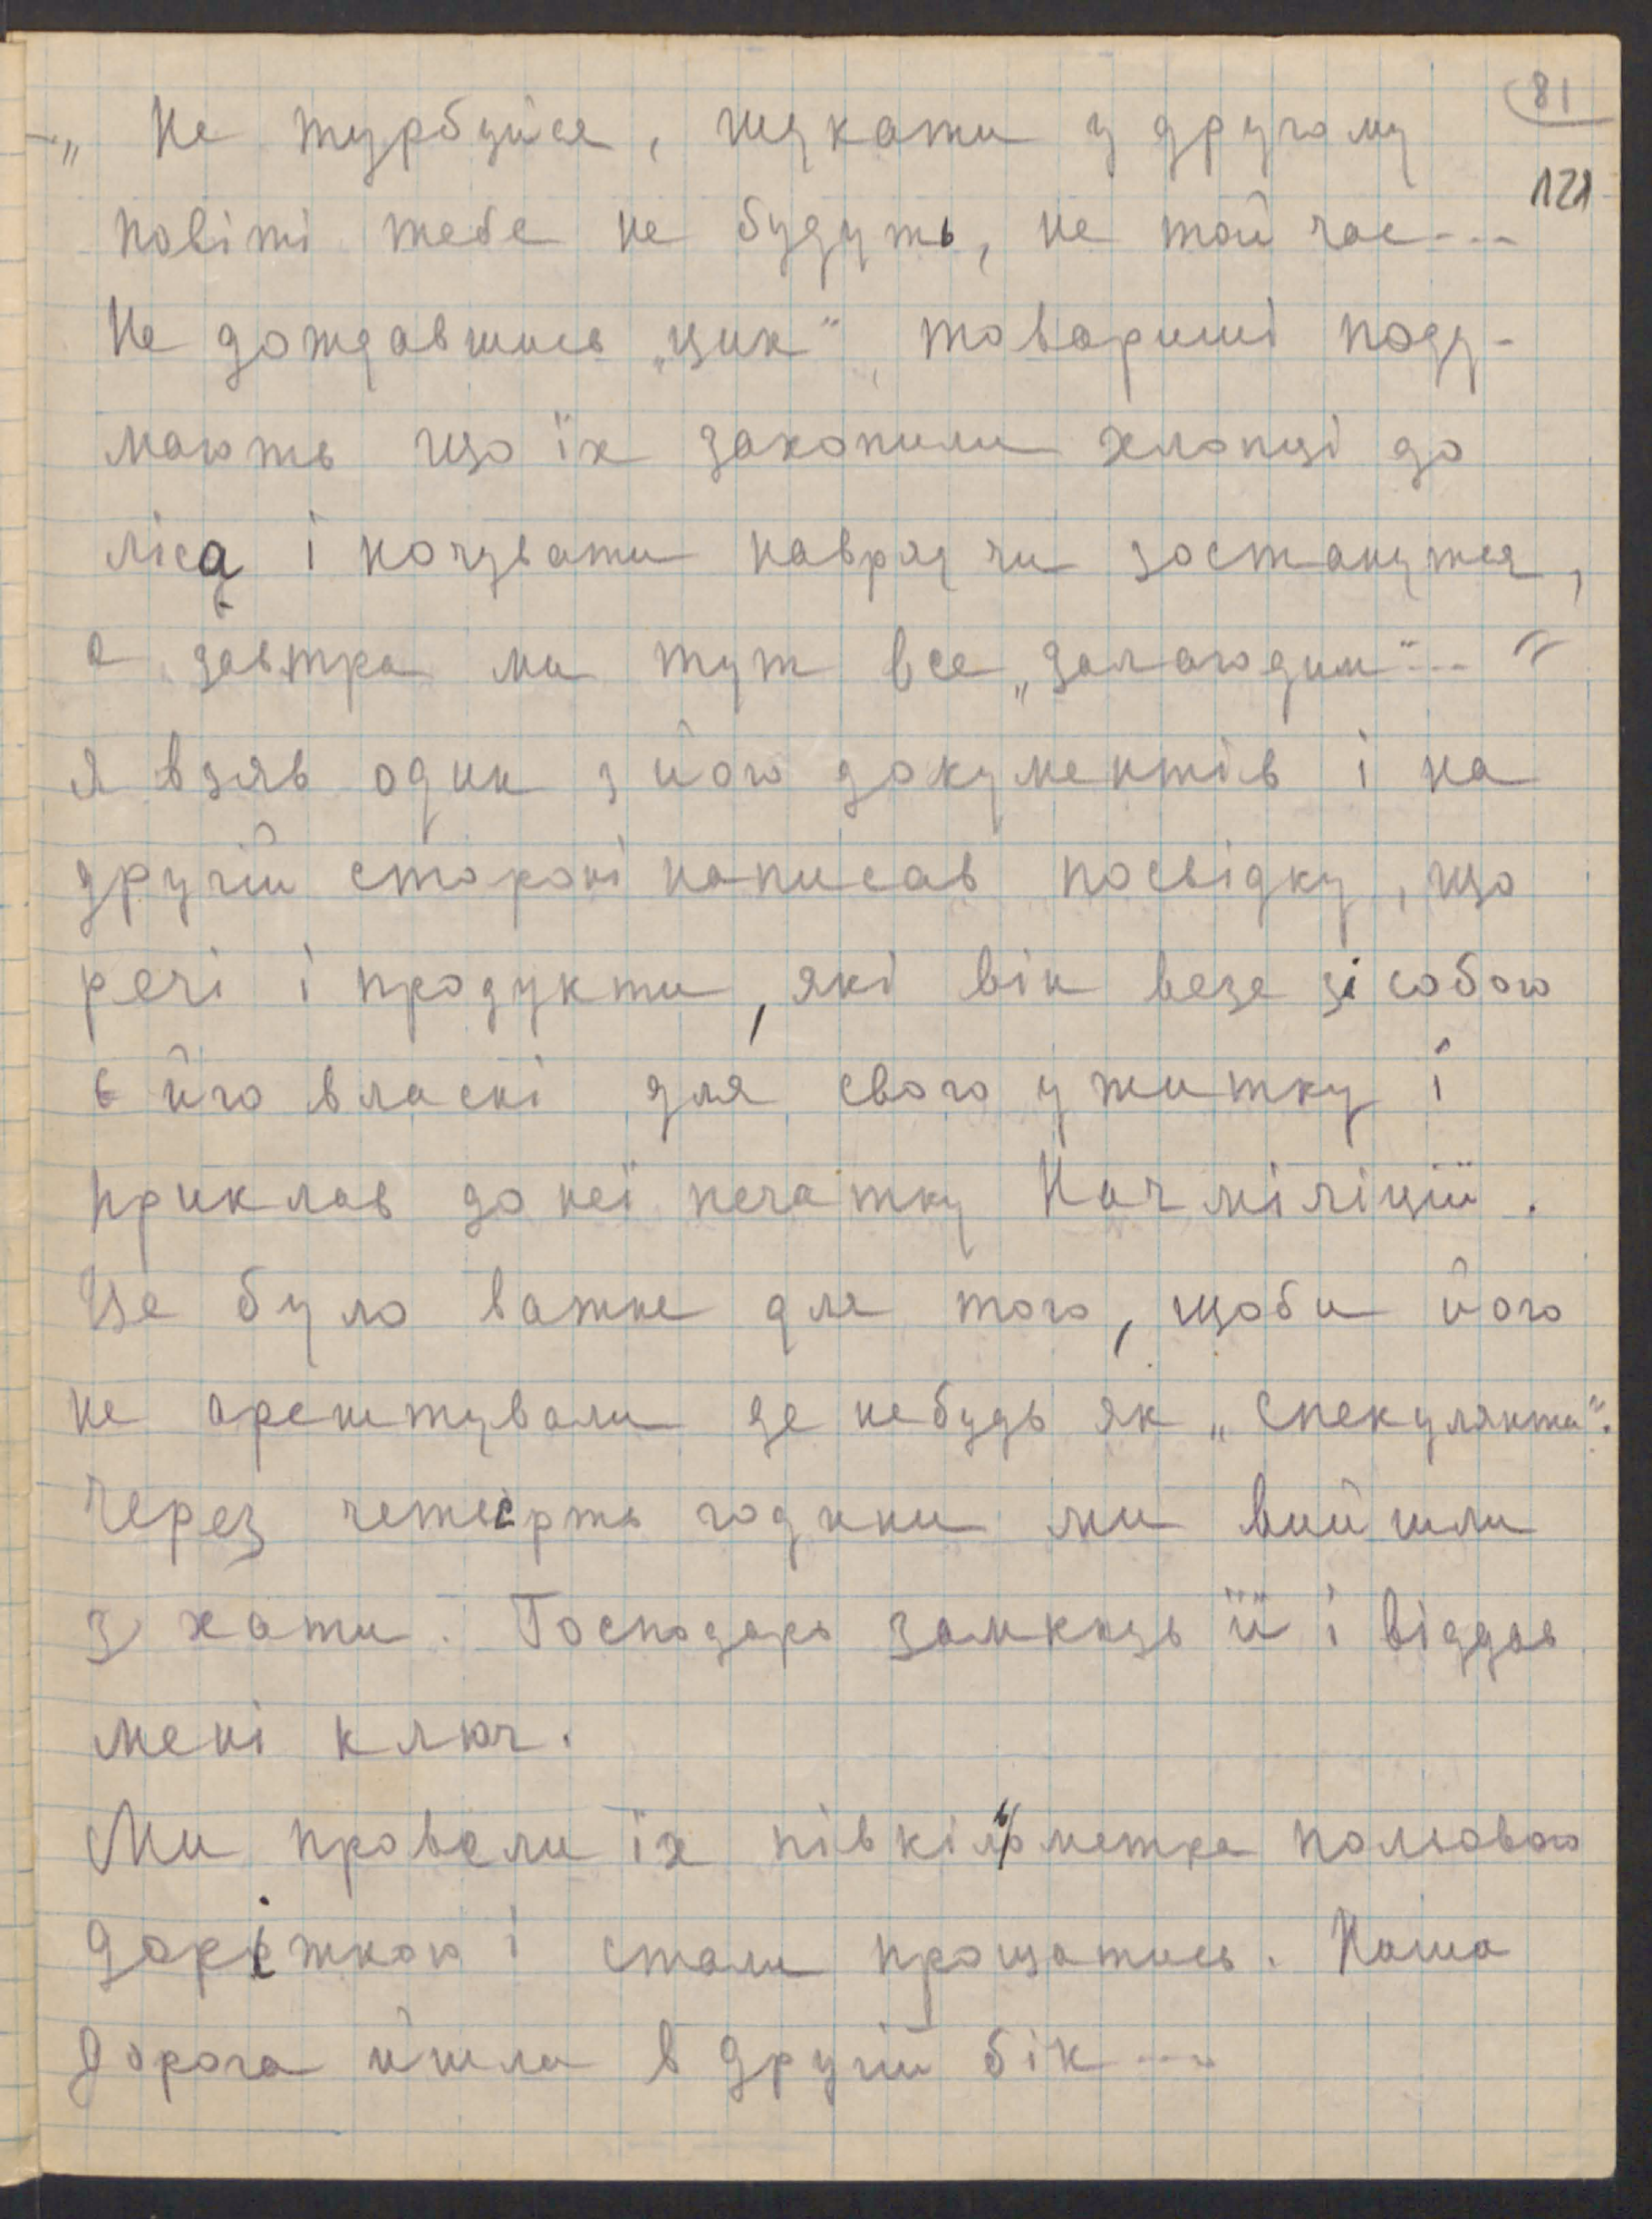 81
121
-„ Не турбуйся, шукати у другому
повіті тебе не будуть, не той час---
Не дождавшись „цик“, товариші поду-
мають що їх захопили хлопці до
ліса і ночувати наврядчи зостануться,
а завтра ми тут все „залагодим“--- “
Я взяв один з його документів і на
другій стороні написав посвідку, що
речі і продукти, які він везе зі собою
є його власні для свого ужитку і
приклав до неї печатку Нач міліції.
Це було важне для того, щоби його
не арештували де небудь як „спекулянта“.
Через четверть години ми вийшли
з хати. Господарь замкнув її і віддав
мені ключ.
Ми провели їх півкільометра польовою
доріжкою і стали прощатись. Наша
дорога йшла в другій бік---